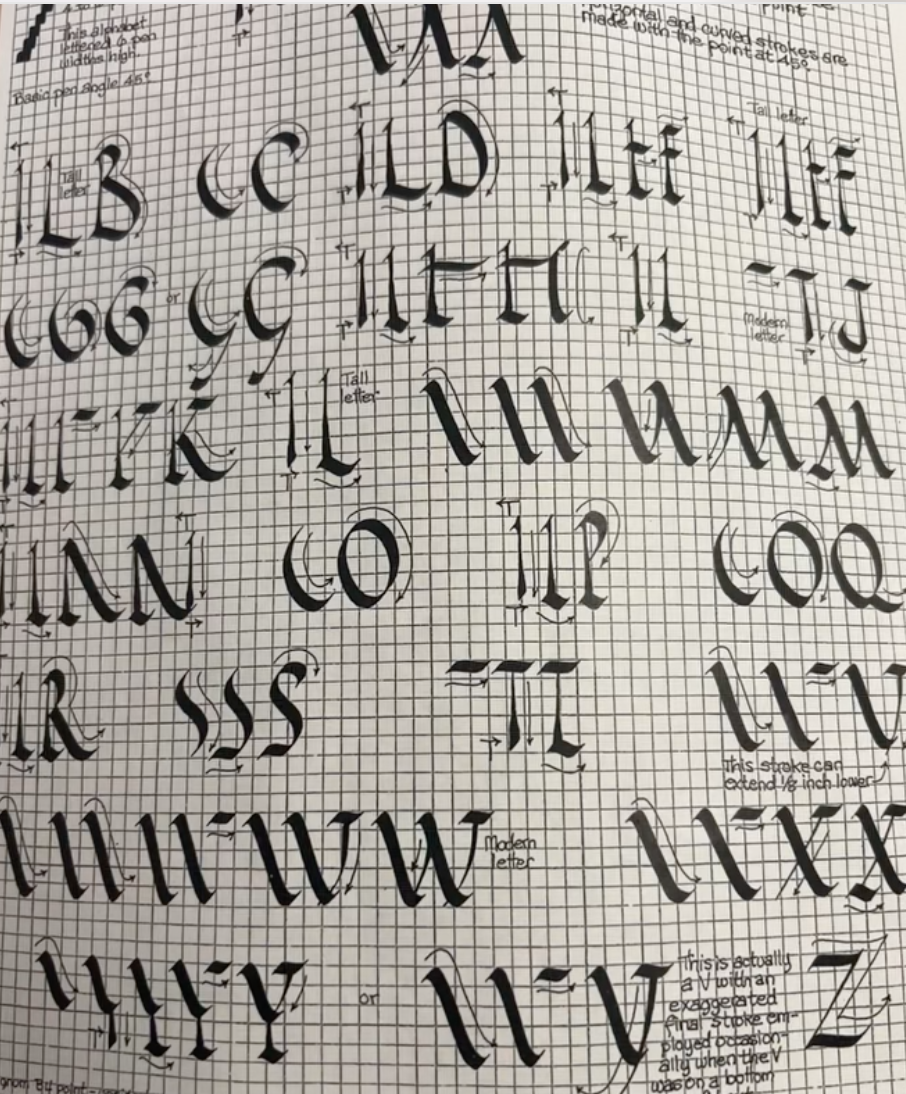 point
This alphabet
lettered 6 pen
widths high.
horizontal and curved strokes are
made with the point at 45°.
Basic pen angle 45°
A
Tall letter
Tall
letter
I L B C C I L D I L E E I L F F
C G G or C G I L H H I L T J
Modern
letter
K K I L
Tall
letter
M M
N N C O I L P C O Q
R S S T I V
This stroke can
extend 1/8 inch lower
W W
Modern
letter
X X
Y Y or V Z
This is actually
a V with an
exaggerated
final stroke em-
ployed occasion-
ally when the V
was on a bottom